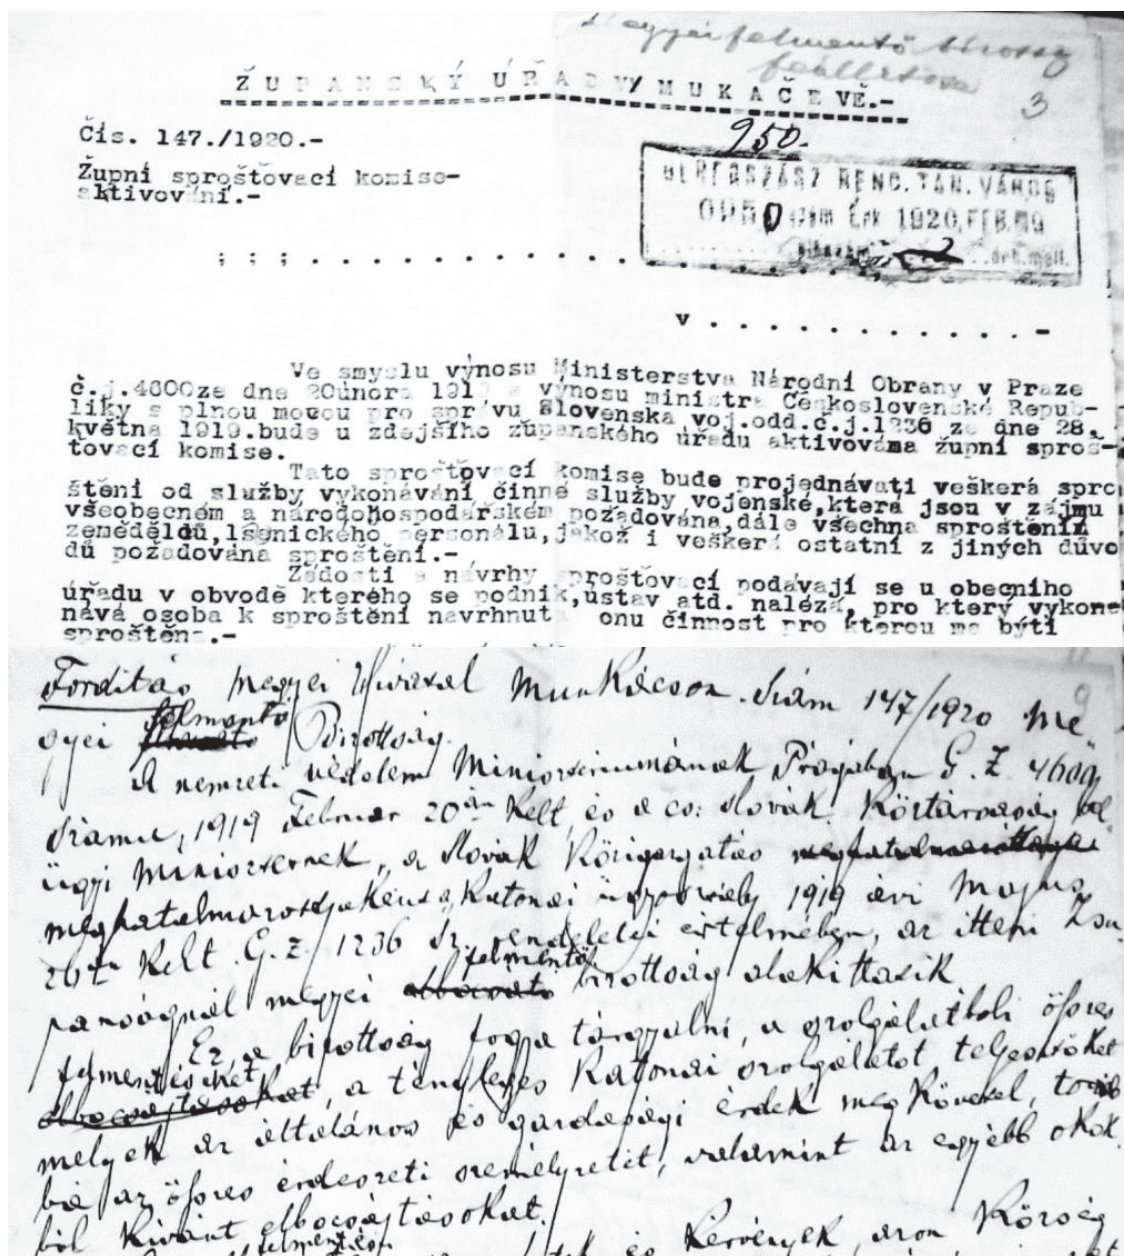 Megyei felmentő bizottság
felállítása
3
ŽUPANSKÝ ÚŘAD V MUKAČEVĚ.-
950.-
Čís. 147./1920.-
Župní sprošťovací komise-
aktivování.-
BEREGSZÁSZ REND. TAN. VÁROS
0950 szám Érk 1920.FEB.19
; ; ; . . . . . . . . . . . . . . . . . . . . . . .
v . . . . . . . . . . . . .-
Ve smyslu výnosu Ministerstva Národní Obrany v Praze
č.j.4600ze dne 20února 1919 a výnosu ministra Československé Repub-
liky s plnou mocou pro správu Slovenska voj.odd.č.j.1236 ze dne 28.
května 1919.bude u zdejšího županského úřadu aktivováma župní sproš-
tovací komise.
Tato sprošťovací komise bude projednávati veškerá spro
štění od služby vykonávání činné služby vojenské,která jsou v zájmu
všeobecném a národohospodářském požadována,dále všechna sproštění
zemědělců, personálu,jakož i veškerá ostatní z jiných důvo
dů požadována sproštění.-
Žádosti a návrhy sprošťovací podávají se u obecního
úřadu v obvodě kterého se podnik,ústav atd. nalézá, pro který vykone
nává osoba k sproštění navrhnutá onu činnost pro kterou má býti
sproštěna.-
9
Fordítás Megyei Hivatal Munkácson. Szám 147/1920 Me
felmentő
gyei Bizottság.
A nemzeti védelem Miniszteriumának Prágában G. Z. 4600
Szamu, 1919 Februar 20án kelt, és a cs: slovák Köztársaság bel
ügyi Miniszternek, a slovák Közigazgatás
meghatalmazottjának katonai 1919 évi Majus
kelt G. Z. 1236 Sz. rendeletei értelmében, az itteni Zsu
felmentő
panságnál megyei bizottság alakittasik
Ez a bizottság fogja tárgyalni, a szolgálatbóli összes
felmentéseket
elbocsájtásokat, a tényleges katonai szolgálatot teljesitőket
melyek az általános és gazdasági érdek megkövetel, továb
bá az összes erdészeti személyzetét, valamint az egyébb okok
ból kivánt elbocsájtásokat.
és Kérvények, azon Község